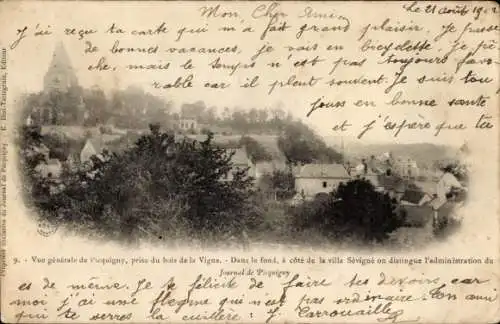 Le 21 août 1902
Mon Cher Ami,
J'ai reçu ta carte qui m'a fait grand plaisir. Je passe
de bonnes vacances, je vais en bicyclette, je pê
che, mais le temps n'est pas toujours favo
rable car il pleut souvent. Je suis tou
jours en bonne santé
et j'espère que tu
9. - Vue générale de Picquigny, prise du bois de la Vigne. - Dans le fond, à côté de la ville Sévigné on distingue l'administration du
Journal de Picquigny
es de même. Je te félicite de faire tes devoirs car
moi j'ai une flegme qui n'est pas ordinaire. ton ami
qui te serres la cuillère: J. Carrouaille